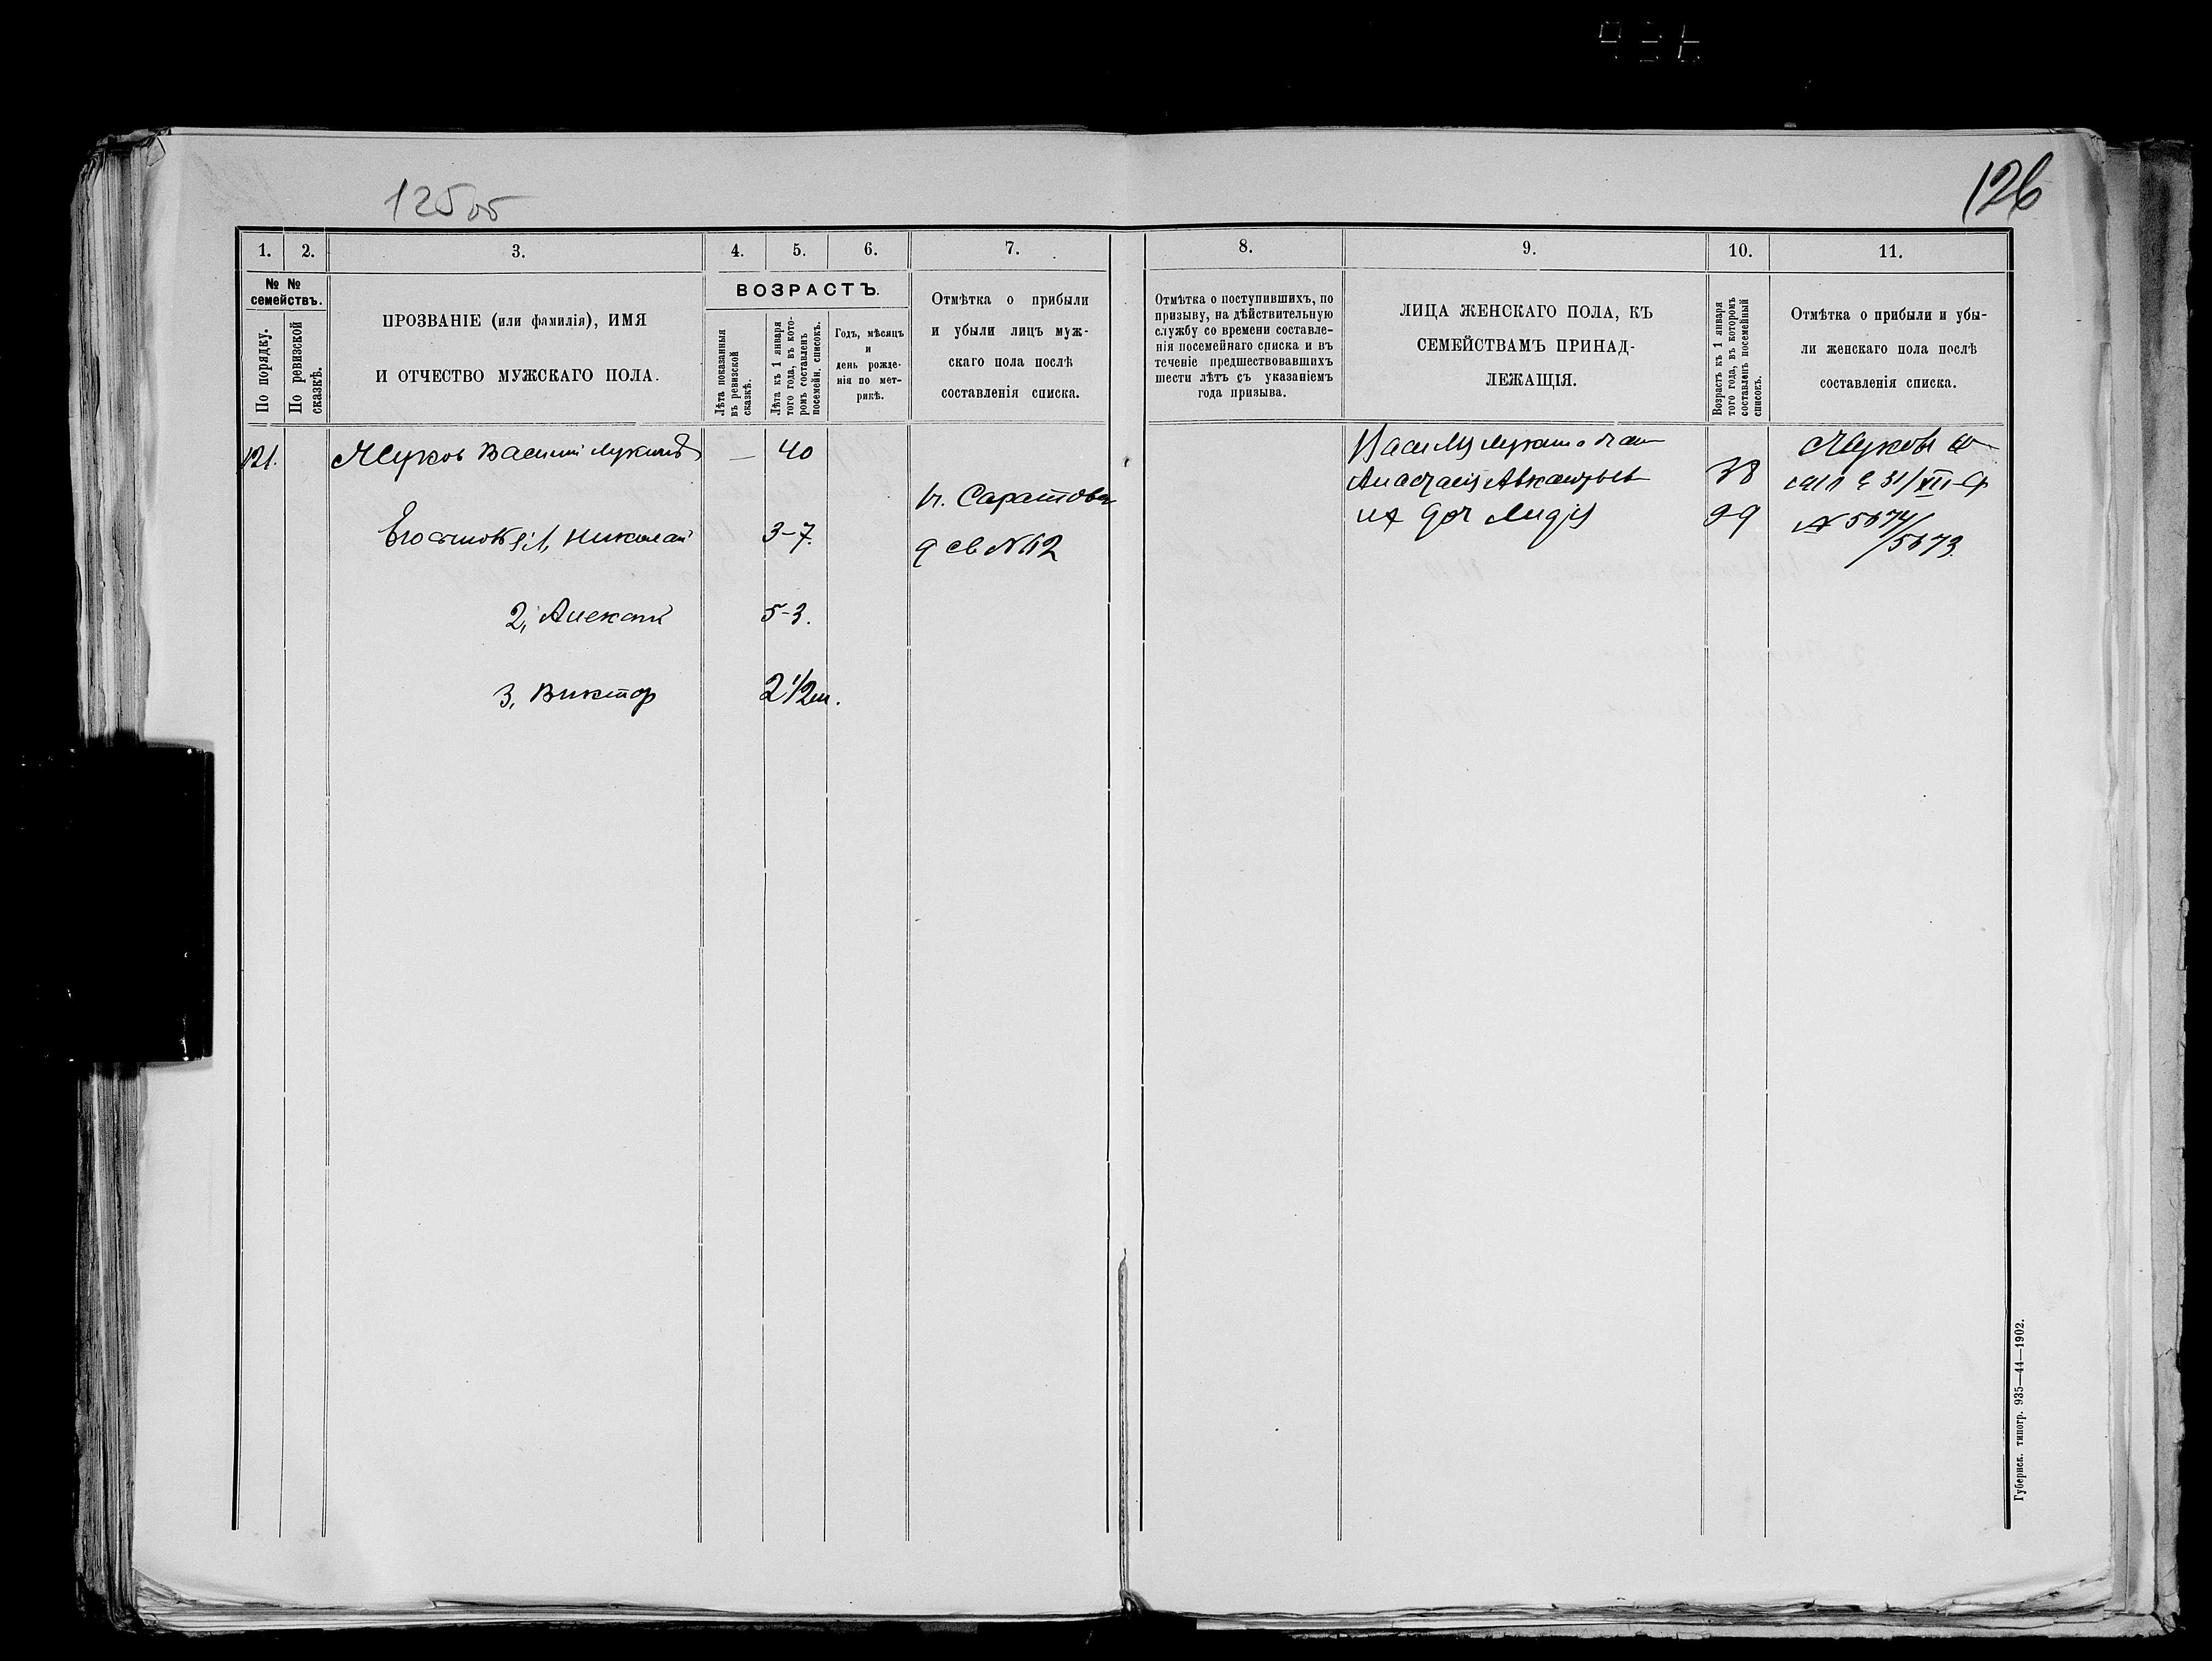 125об
126
1.
2.
3.
4.
5.
6.
7.
8.
9.
10.
11.
№ №
семействъ.
По порядку.
По ревизской
сказкѣ.
ПРОЗВАНІЕ (или фамилія), ИМЯ
И ОТЧЕСТВО МУЖСКАГО ПОЛА.
ВОЗРАСТЪ.
Лѣта показанныя
въ ревизской
сказкѣ.
Лѣта къ 1 января
того года, въ кото-
ромъ составленъ
посемейн. списокъ.
Годъ, мѣсяцъ
и
день рожде-
нія по мет-
рикѣ.
Отмѣтка о прибыли
и убыли лицъ муж-
скаго пола послѣ
составленія списка.
Отмѣтка о поступившихъ, по
призыву, на дѣйствительную
службу со времени составле-
нія посемейнаго списка и въ
теченіе предшествовавшихъ
шести лѣтъ съ указаніемъ
года призыва.
ЛИЦА ЖЕНСКАГО ПОЛА, КЪ
СЕМЕЙСТВАМЪ ПРИНАД-
ЛЕЖАЩІЯ.
Возрастъ къ 1 января
того года, въ которомъ
составленъ посемейный
списокъ.
Отмѣтка о прибыли и убы-
ли женскаго пола послѣ
составленія списка.
121.
Василий
— 40
Его 1, Николай
3-7.
2, Алексей
5-3.
3, Виктор
2 1/2 м.
г. Саратова
д св №112
Анастасія
38
их доч Лидія
9-9
31/XII
№ 5674/
/5673.
Губернск. типогр. 935—44—1902.